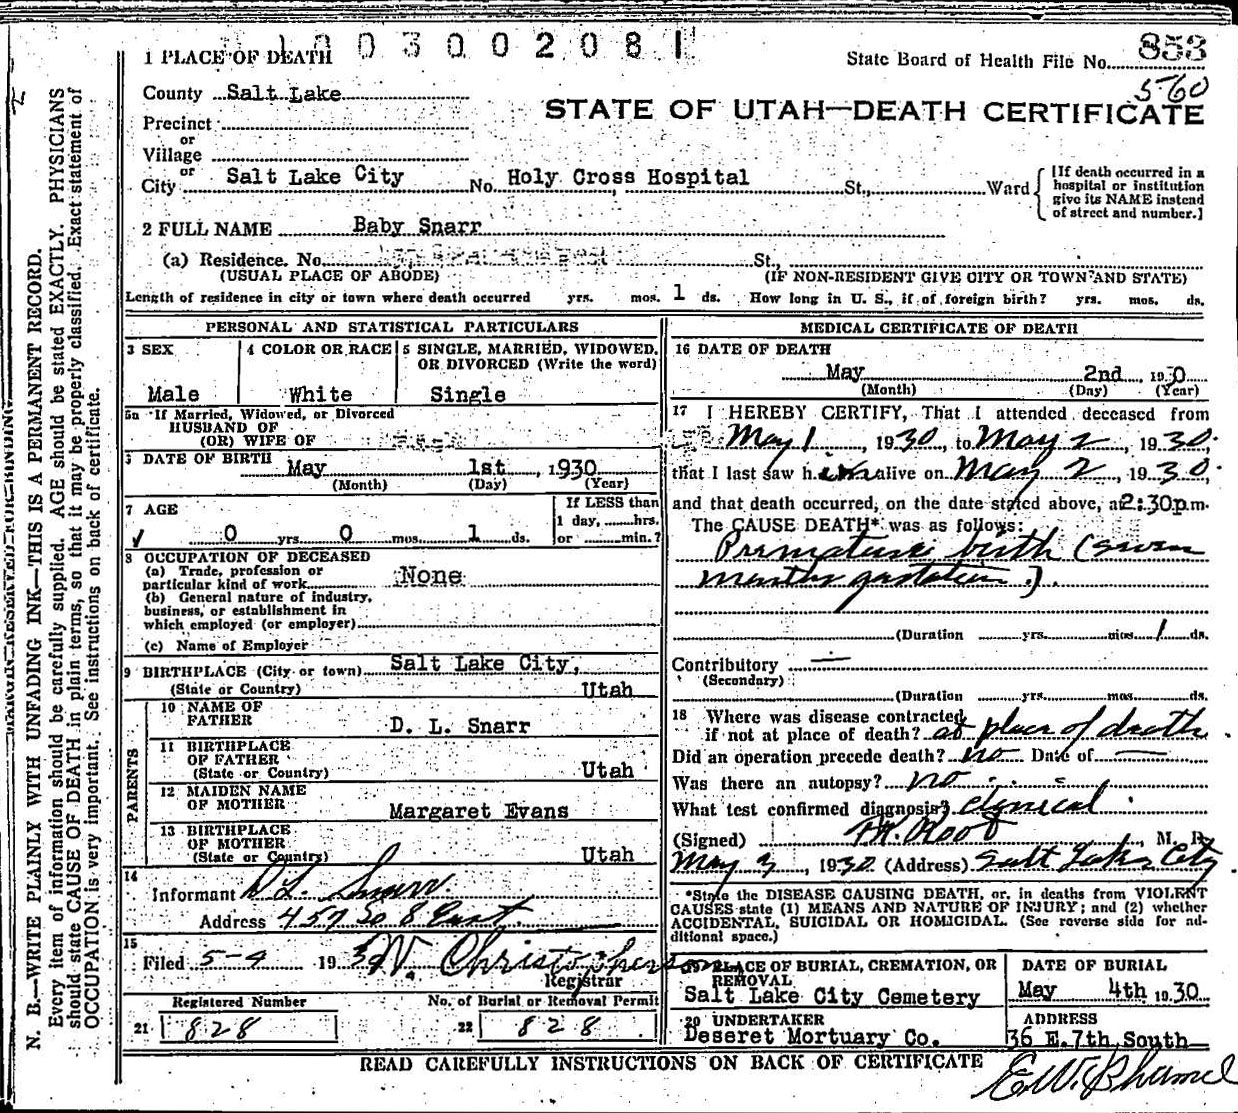 1003002081
1 PLACE OF DEATH
State Board of Health File No. 853
560
County Salt Lake
STATE OF UTAH—DEATH CERTIFICATE
Precinct
or
Village
or
City Salt Lake City No. Holy Cross Hospital St., Ward
[If death occurred in a
hospital or institution
give its NAME instead
of street and number.]
2 FULL NAME Baby Snarr
(a) Residence. No. St.,
(USUAL PLACE OF ABODE) (IF NON-RESIDENT GIVE CITY OR TOWN AND STATE)
Length of residence in city or town where death occurred yrs. mos. 1 ds. How long in U. S., if of foreign birth? yrs. mos. ds.
PERSONAL AND STATISTICAL PARTICULARS
3 SEX
Male
4 COLOR OR RACE
White
5 SINGLE, MARRIED, WIDOWED,
OR DIVORCED (Write the word)
Single
5a If Married, Widowed, or Divorced
HUSBAND OF
(OR) WIFE OF
DATE OF BIRTH May 1st 1930
(Month) (Day) (Year)
7 AGE
0 yrs. 0 mos. 1 ds.
If LESS than
1 day, hrs.
or min.?
8 OCCUPATION OF DECEASED
(a) Trade, profession or
particular kind of work None
(b) General nature of industry,
business, or establishment in
which employed (or employer)
(c) Name of Employer
9 BIRTHPLACE (City or town) Salt Lake City,
(State or Country) Utah
PARENTS
10 NAME OF
FATHER D. L. Snarr
11 BIRTHPLACE
OF FATHER
(State or Country) Utah
12 MAIDEN NAME
OF MOTHER Margaret Evans
13 BIRTHPLACE
OF MOTHER
(State or Country) Utah
14
Informant D L Snarr
Address 457 So 8 East
15
Filed 5-4 1930 Christopherson
Registrar
Registered Number
21 828
No. of Burial or Removal Permit
22 828
MEDICAL CERTIFICATE OF DEATH
16 DATE OF DEATH
May 2nd 1930
(Month) (Day) (Year)
17 I HEREBY CERTIFY, That I attended deceased from
May 1, 1930, to May 2, 1930.
that I last saw him alive on May 2, 1930,
and that death occurred, on the date stated above, at 2:30 p.m.
The CAUSE DEATH* was as follows:
Premature birth (seven
months gestation.)
(Duration yrs. mos. 1 ds.
Contributory —
(Secondary)
(Duration yrs. mos. ds.
18 Where was disease contracted
if not at place of death? at place of death
Did an operation precede death? no Date of —
Was there an autopsy? no
What test confirmed diagnosis? clinical
(Signed) Root, M. D.
May 3, 1930 (Address) Salt Lake City
*State the DISEASE CAUSING DEATH, or, in deaths from VIOLENT
CAUSES state (1) MEANS AND NATURE OF INJURY; and (2) whether
ACCIDENTAL, SUICIDAL OR HOMICIDAL. (See reverse side for ad-
ditional space.)
19 PLACE OF BURIAL, CREMATION, OR
REMOVAL
Salt Lake City Cemetery
DATE OF BURIAL
May 4th 1930
20 UNDERTAKER
Deseret Mortuary Co.
ADDRESS
36 E. 7th South
READ CAREFULLY INSTRUCTIONS ON BACK OF CERTIFICATE
N. B.—WRITE PLAINLY WITH UNFADING INK—THIS IS A PERMANENT RECORD.
Every item of information should be carefully supplied. AGE should be stated EXACTLY. PHYSICIANS
should state CAUSE OF DEATH in plain terms, so that it may be properly classified. Exact statement of
OCCUPATION is very important. See instructions on back of certificate.